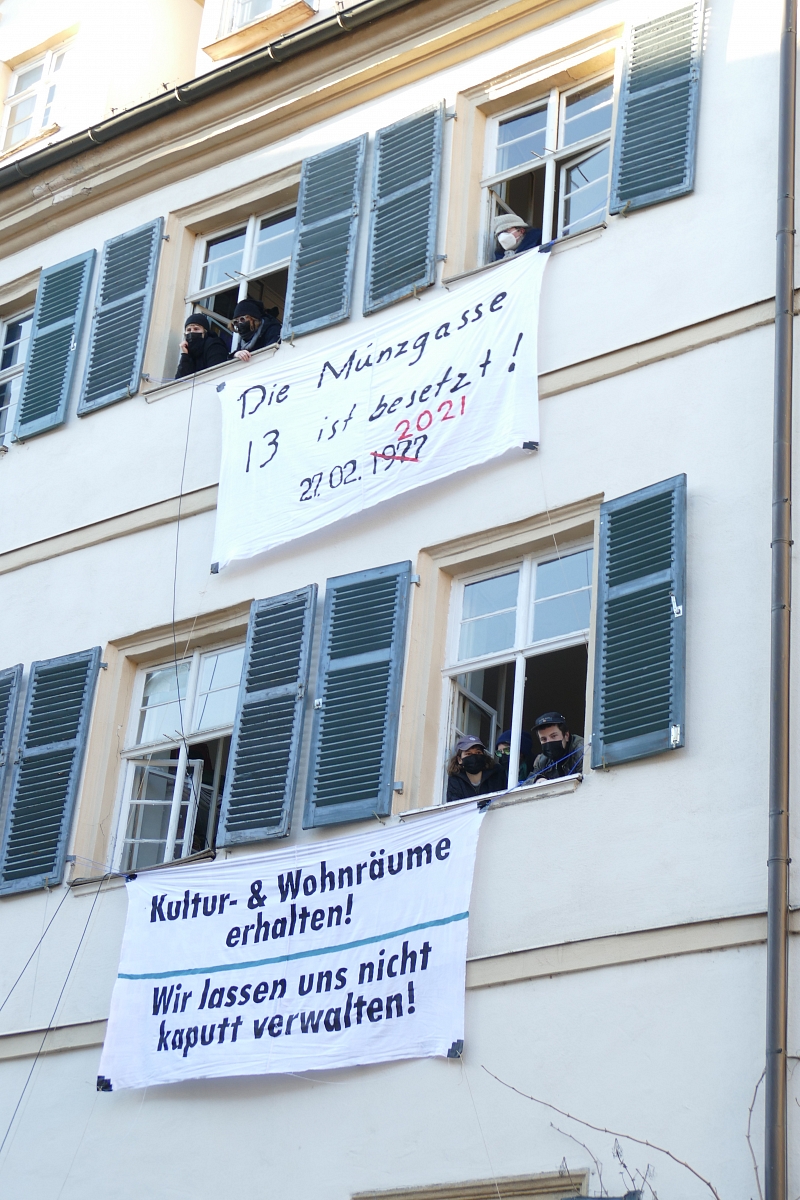 Die Münzgasse
13 ist besetzt!
2021
27.02. 1977
Kultur- & Wohnräume
erhalten!
Wir lassen uns nicht
kaputt verwalten!